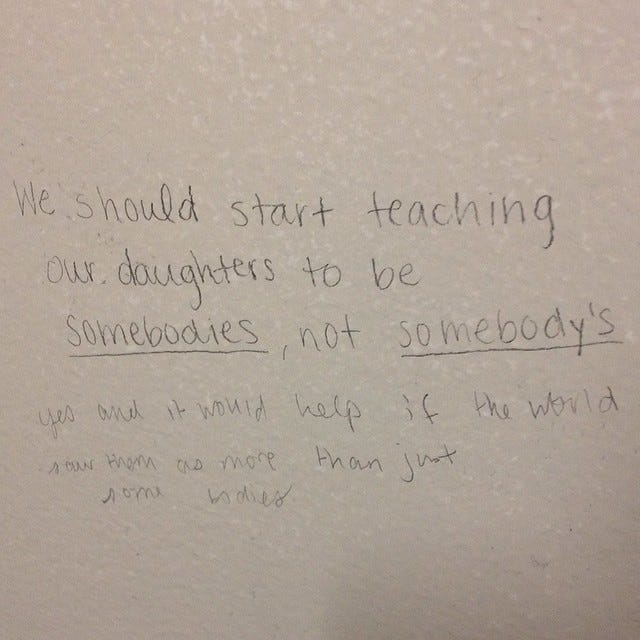 We should start teaching
our daughters to be
somebodies, not somebody's
yes and it would help if the world
saw them as more than just
some bodies